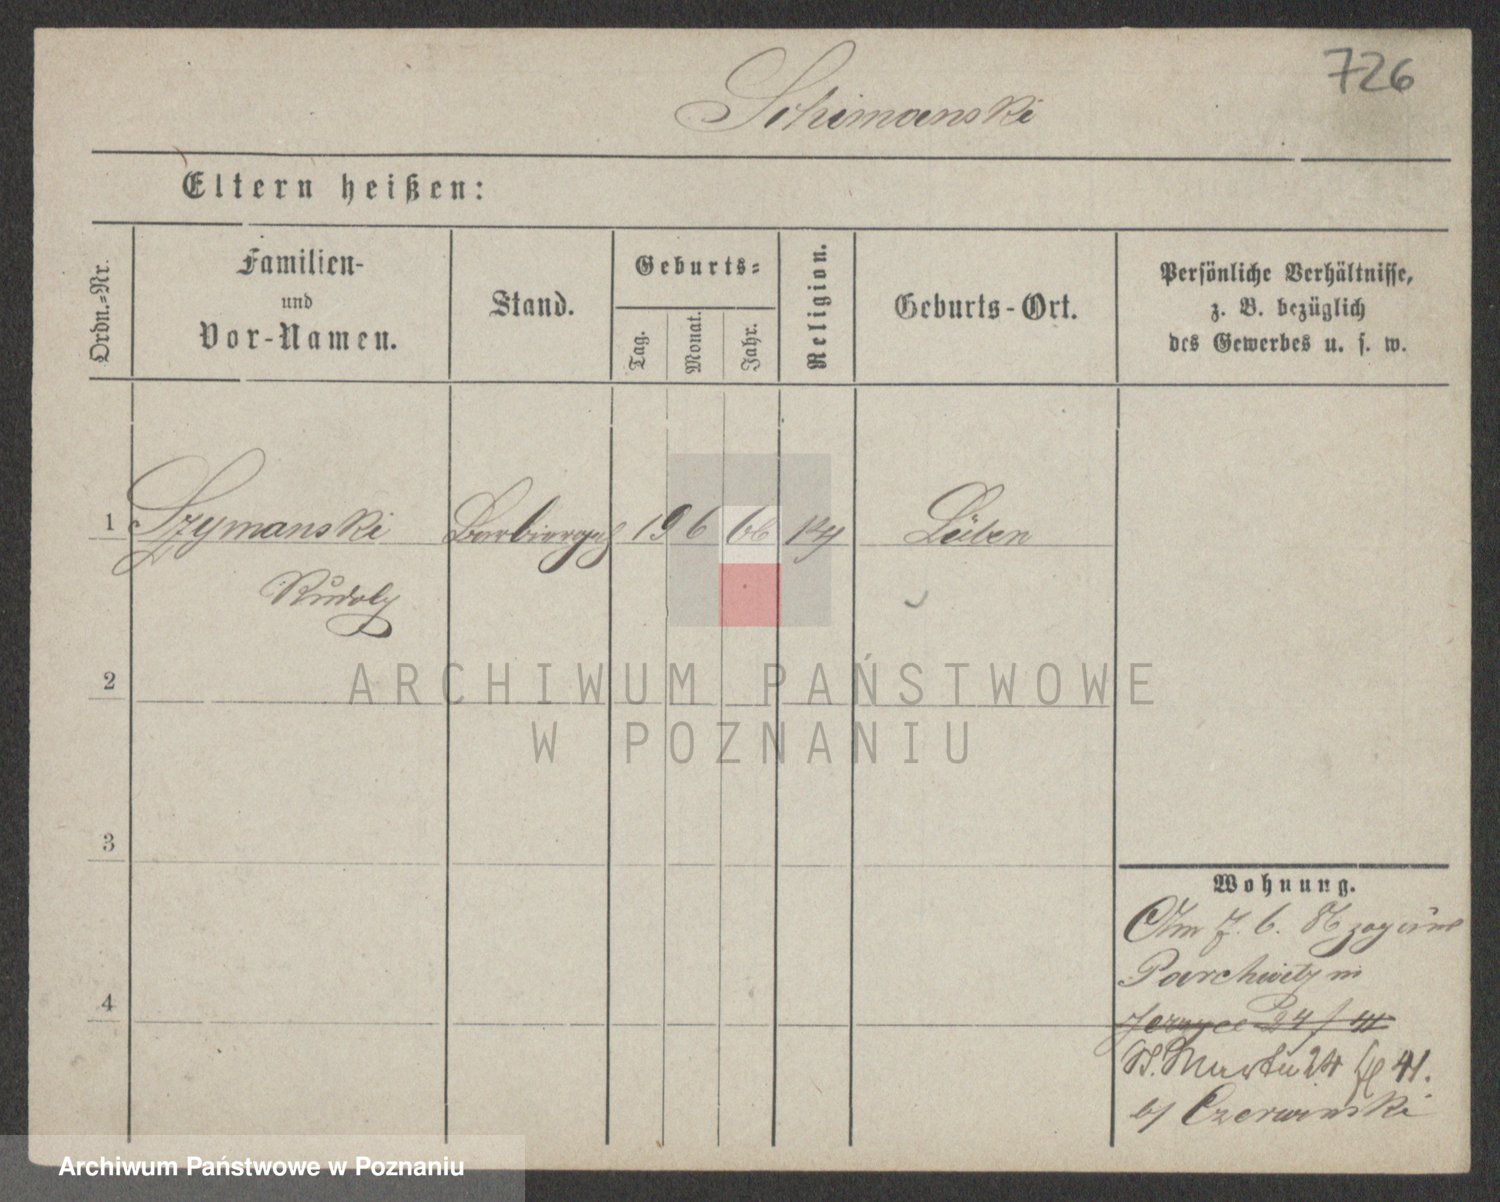 726
Schimanski
Eltern heißen:
Ordn.-Nr.
Familien-
und
Vor-Namen.
Stand.
Geburts-
Tag.
Monat.
Jahr.
Religion.
Geburts-Ort.
Persönliche Verhältnisse,
z. B. bezüglich
des Gewerbes u. s. w.
1 Szymanski Barbiergeh 19 6 66 Lüben
Rudolf
2
3
4
Wohnung.
Am 7. 6.
24 / III
St. Martin 24 41.
b/ Czerwinski
ARCHIWUM PAŃSTWOWE
W POZNANIU
Archiwum Państwowe w Poznaniu